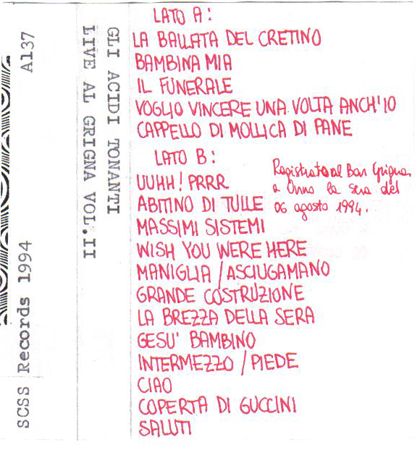 LATO A:
LA BALLATA DEL CRETINO
BAMBINA MIA
IL FUNERALE
VOGLIO VINCERE UNA VOLTA ANCH'IO
CAPPELLO DI MOLLICA DI PANE
LATO B:
UUHH! PRRR
ABITINO DI TULLE
MASSIMI SISTEMI
WISH YOU WERE HERE
MANIGLIA/ASCIUGAMANO
GRANDE COSTRUZIONE
LA BREZZA DELLA SERA
GESU' BAMBINO
INTERMEZZO/PIEDE
CIAO
COPERTA DI GUCCINI
SALUTI
Registrato al Bar Grigna
a Onno la sera del
06 agosto 1994.
GLI ACIDI TONANTI
LIVE AL GRIGNA VOL.II
SCSS Records 1994 A137